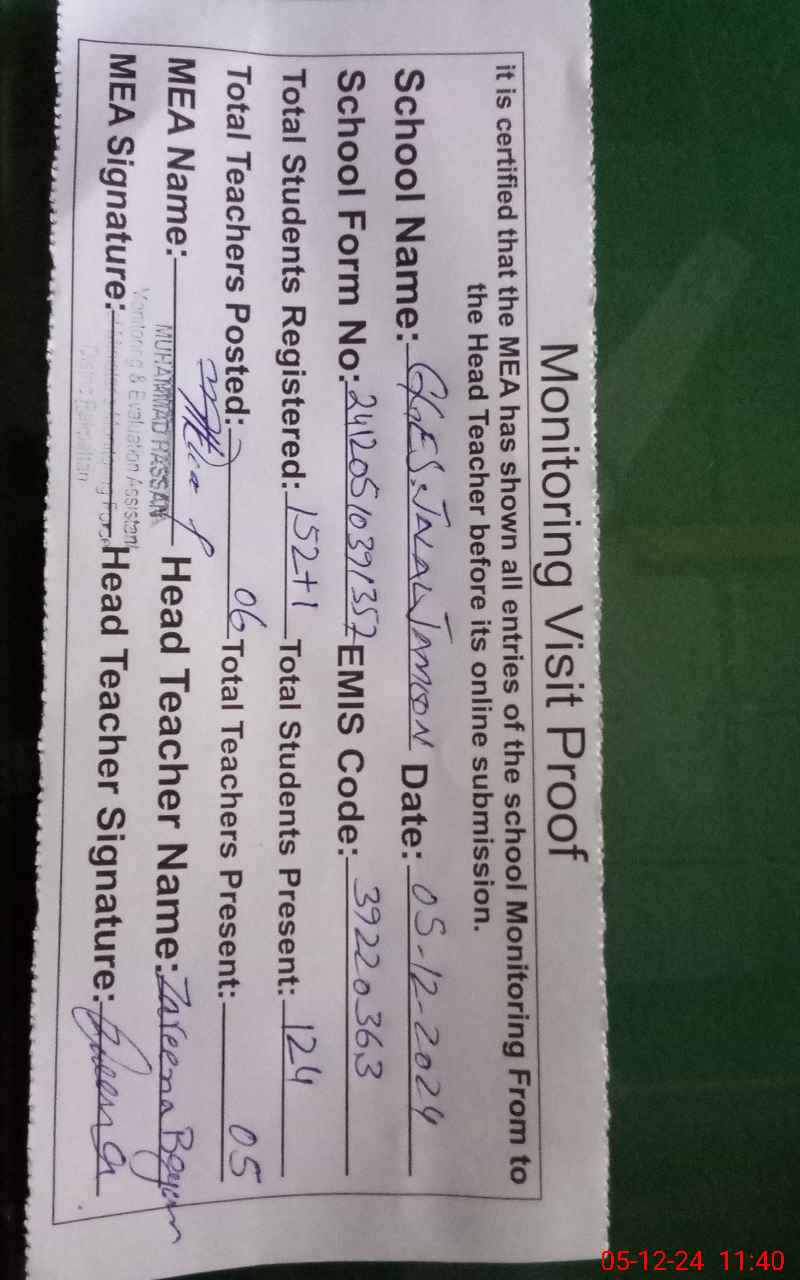 Monitoring Visit Proof
it is certified that the MEA has shown all entries of the school Monitoring From to
the Head Teacher before its online submission.
School Name: GGES. JALAL JAMOON Date: 05-12-2024
School Form No: 24120510391357 EMIS Code: 39220363
Total Students Registered: 152+1 Total Students Present: 124
Total Teachers Posted: 06 Total Teachers Present: 05
MEA Name: MUHAMMAD HASSAN Head Teacher Name: Zareena Begum
Monitoring & Evaluation Assistant
Monitoring Force
MEA Signature: Head Teacher Signature:
05-12-24 11:40